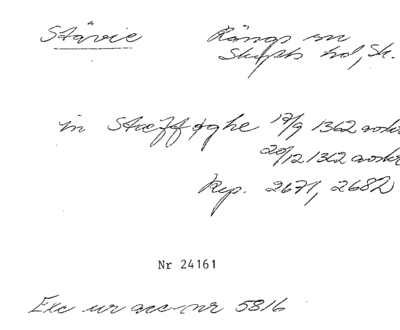 Stävie Rängs sn
Skytts hd, Sk.
in Stæfføghe 17/9 1362 avskr
20/12 1362 avskr
Rep. 2671, 2682
Nr 24161
Exc ur acc-nr 5816